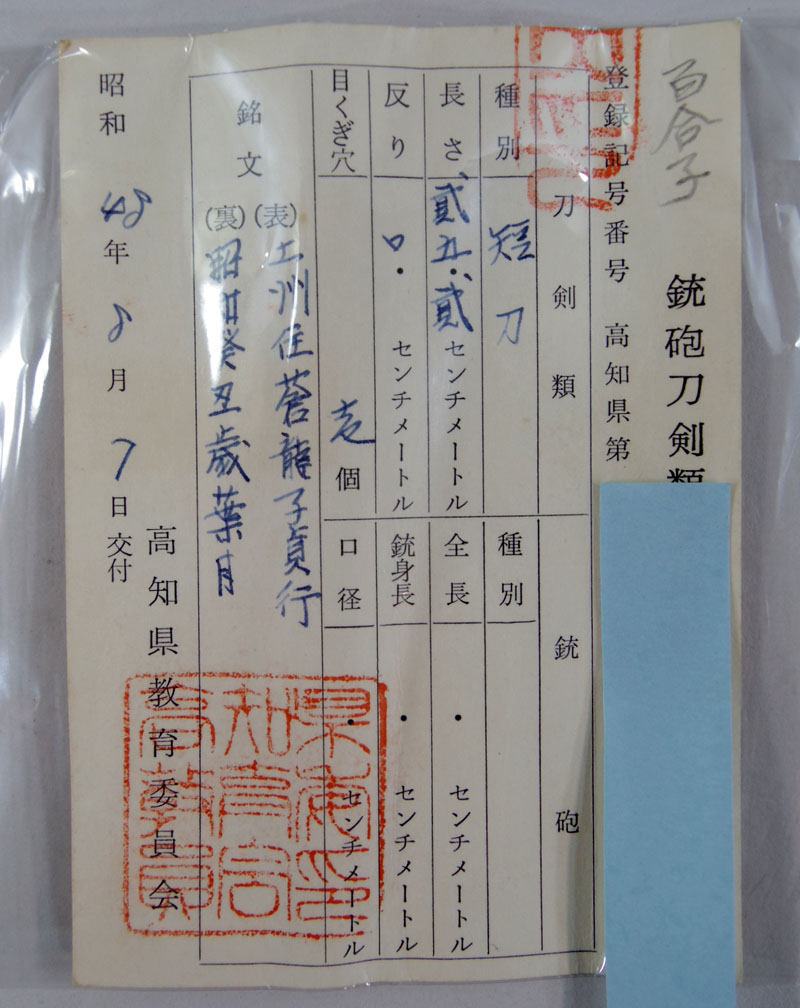 百合子
銃砲刀剣類
登録記号番号 高知県第
刀剣類
種別 短刀
長さ 貮五・貮 センチメートル
反り ロ・ センチメートル
目くぎ穴 壱個
銘文
(表)土洲住蒼龍子貞行
(裏)昭和癸丑歳葉月
銃砲
種別
全長 ・ センチメートル
銃身長 ・ センチメートル
口径 ・ センチメートル
昭和48年8月7日交付
高知県教育委員会